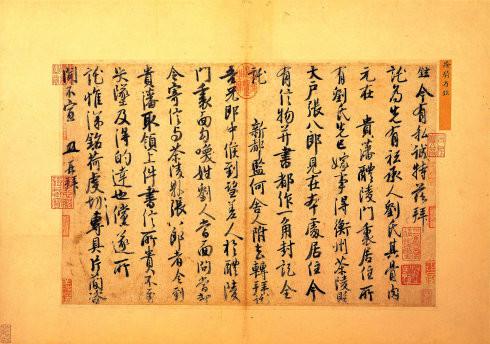 鉉今有私誠特茲拜
託為先有祗承人劉氏其骨肉
元在 貴藩醴陵門裏居住所
有劉氏先已嫁事得衡州茶陵縣
大戶張八郎見在本處居住今
有信物并書都作一角封記全
託 新都監何舍人附去轉拜託
吾兄郎中候到望差人於醴陵
門裏面勾喚姓劉人當面問當卻
令寄信與茶陵縣張八郎者令到
貴藩取領上件書信所貴不至
失墜及得的達也儻遂所
託惟深銘荷虔切專具片簡咨
聞不宣 鉉再拜